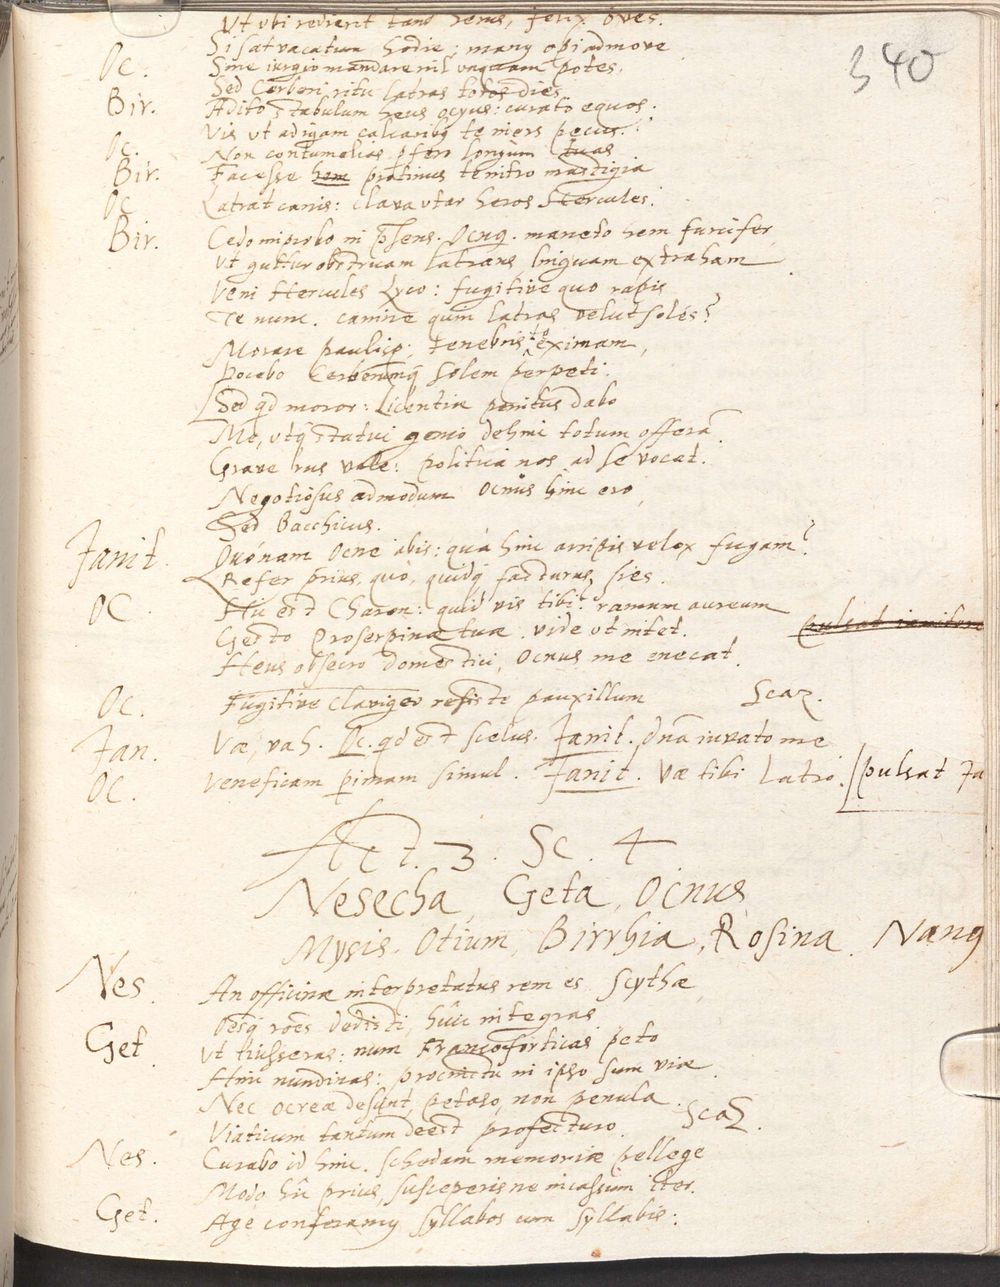 340
Ut ubi redierit tand herus, felix oves.
Si sat vacatum hodie; manu opi admove
Oc. Sine iurgio mandare nil unquam potes,
Sed Cerberi ritu latras totos dies.
Bir. Adito stabulum heus ocyus: curato equos.
Vis ut adigam calcaribq te iners pecus.
Oc. Non contumelias pfero longum tuas
Bir. Facesse hem protinus te intro mastigia
Oc Latrat canis: clava utar heros Hercules.
Bir. Cedo mi pirbo in psens. Ocnq. maneto hem furcifer
Ut guttur obstruam latrans linguam extraham
Veni Hercules Lyco: fugitive quo rapis
Te nunc. canine quin latras velut soles?
Morare paulisp; tenebris te eximam,
Docebo Cerberumq solem perpeti.
Sed qd moror: Licentiæ penitus dabo
Me, utq statui genio dehinc totum offeram
Grave rus vale: politica nos ad se vocat.
Negotiosus admodum Ocnus hinc ero,
Sed Bacchicus.
Janit. Quónam Ocne abis: quà hinc arripis velox fugam?
Refer prius, quò, quidq facturus sies.
OC Hic est Charon: quid vis tibi: ramum aureum
pulsat ianitorem
Gesto Proserpinæ tuæ. vide ut nitet.
Heus obsecro domestici, Ocnus me enecat.
Oc. Fugitive claviger resiste pauxillum Scaz.
Jan. Væ, vah. Oc. qd est scelus. Janit. dnã iuvato me
OC. Veneficam pimam simul. Janit. væ tibi latro. pulsat Ja
Act. 3. Sc. 4
Nesecha, Geta, Ocnus
Mysis. Otium, Birrhia, Rosina. Nang
Nes. An officinæ interpretatus rem es Scythæ
Oesq roes dedisti, huic integras
Get Ut iusseras: num Francoforticas peto
Hinc nundinas: procinctu in ipso sum viæ
Nec ocreæ desunt, petaso, non penula.
Viaticum tantum deest profecturo. Scaz.
Nes. Curabo id hinc. schedam memoriæ pellege
Modo hic prius, susceperis ne incassum iter.
Get. Age conferamq syllabos cum syllabis: